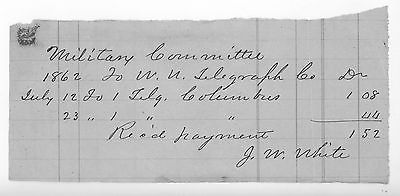 Military Committee
1862 To W. U. Telegraph Co Dr
July 12 To 1 Telg. Columbus 1 08
23 " 1 " " 44
Rec'd payment 1 52
J. W. White